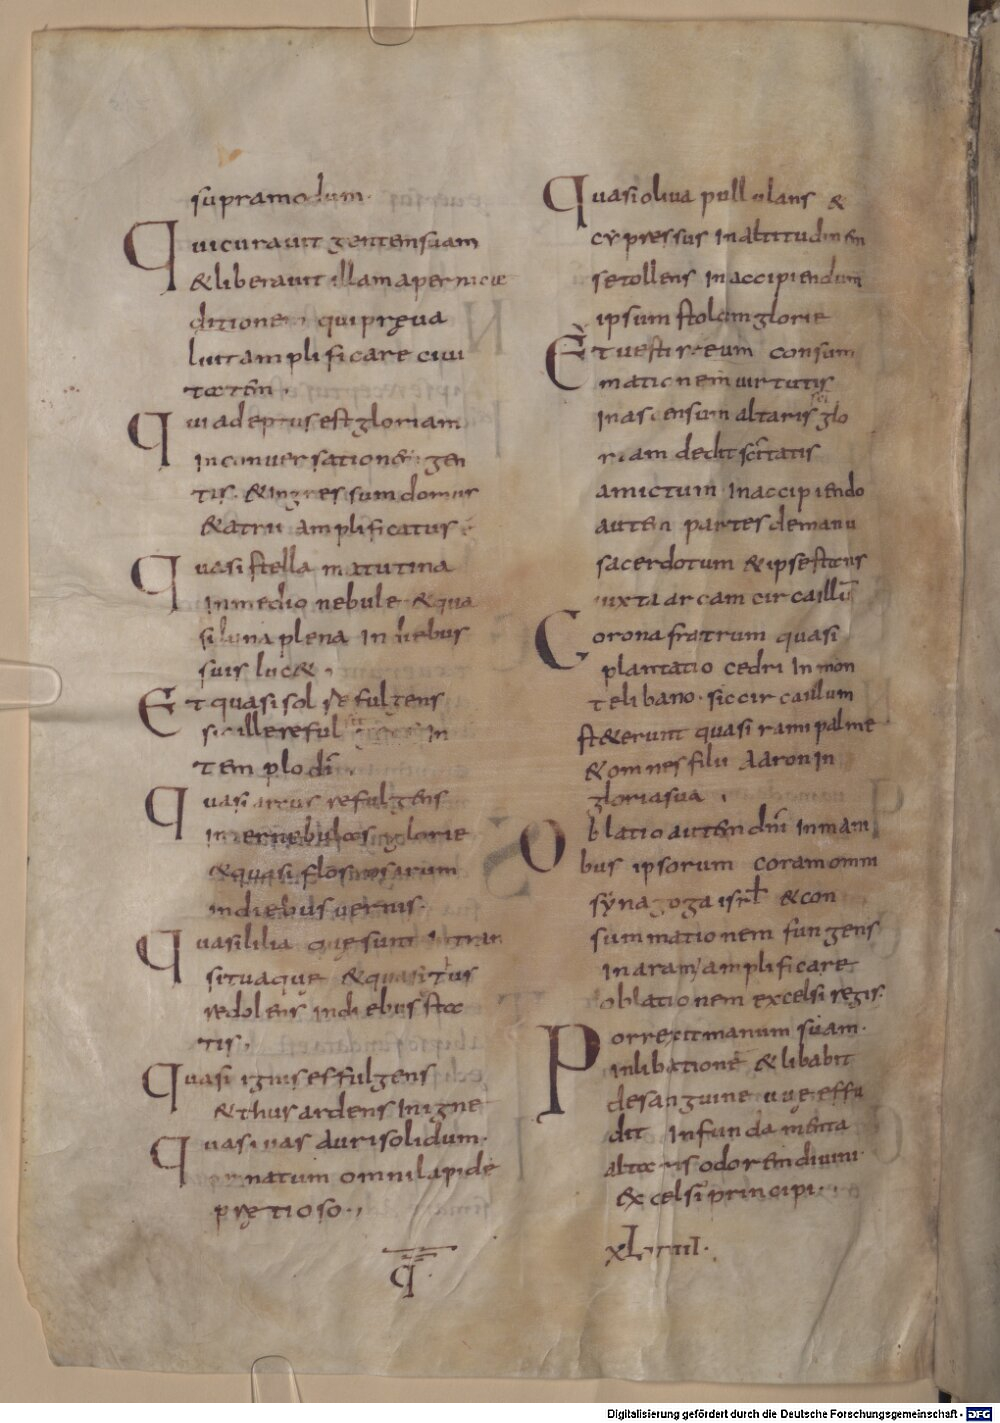 supramodum.
Quicurauit gentemsuam
&liberauit illamapernicie
ditionem quipręua
luitamplificare ciui
tatem.
Quiadeptusestgloriam
inconuersationem gen
tis. &ingressumdomus
&atrii amplificatus
Quasistella matutina
inmedio nebule &qua
siluna plena indiebus
suis luc&.
Etquasisol refulgens
sicillereful in
templodi.
Quasi arcus refulgens
inter nebulas glorie
&quasi flos rosarum
indiebus uernis.
Quasililia quesunt intran
situaque &quasi tus
redolens indiebusesta
tis.
Quasi ignis effulgens
&thus ardens inigne
Quasiuas aurisolidum.
ornatum omnilapide
prętioso.,
q.
Quasioliua pullulans &
cypressus inaltitudinem
setollens inaccipiendum
ipsum stolamglorie
Etuestireeum consum
mationem uirtutis
inascensum altaris sci glo
riam dedit scitatis
amictum inaccipiendo
autem partes demanu
sacerdotum &ipsestans
iuxta arcam circaillu
Corona fratrum quasi
plantatio cedri inmon
telibano. siccircaillum
st&erunt quasi rami palme
&omnes filii aaron in
gloriasua.
Oblatioautem dni inman
bus ipsorum coramomni
synagoga isrl &con
summationem fungens
inara amplificare
oblationem excelsi regis.
Porrexitmanum suam.
inlibatione &libabit
desanguine uuę effu
dit infundamenta
altaris odoremdiuini
excelsi principi.
xLVIIII.
Digitalisierung gefördert durch die Deutsche Forschungsgemeinschaft - DFG